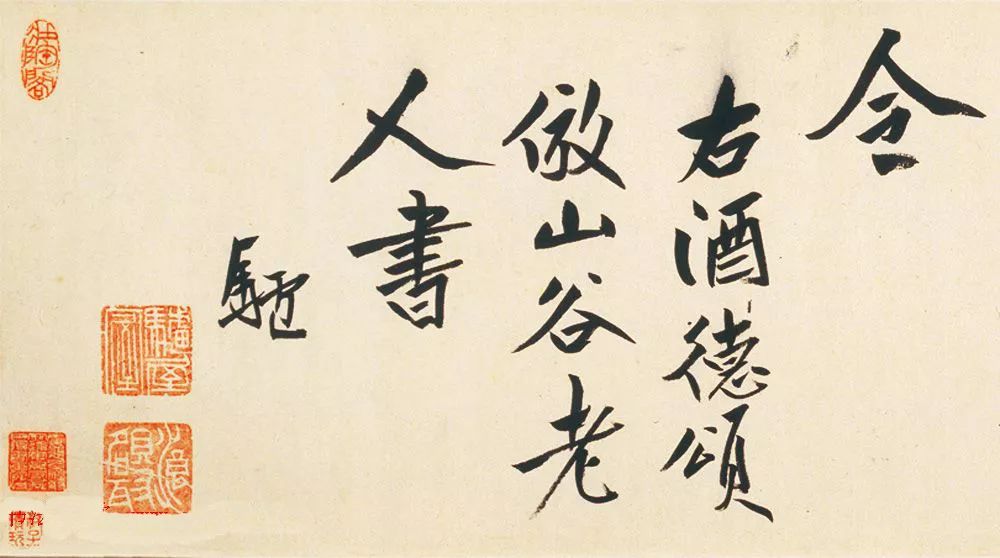 令
右酒德頌
倣山谷老
人書
驢